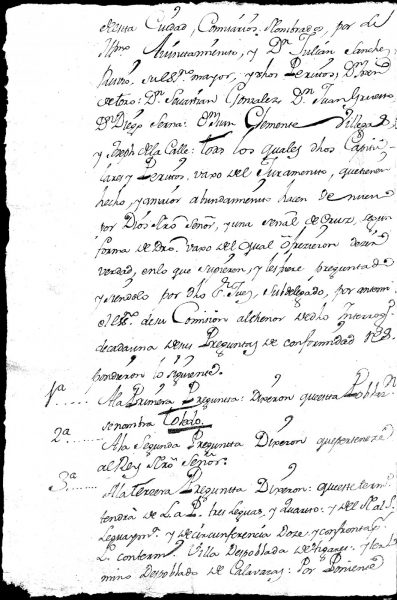 de esta Ciudad, Comisarios Nombrados, por el
Ylmo Aiuntamiento, y Dn Julian Sanchez
su ess.no mayor, y los Peritos; Dn
de toro: Dn Sevastian Gonzalez Dn Juan
Dn Diego Serna: Dn Juan Clemente Villegas
y Joseph de la Calle: todos los quales dhos Capitu
lares y Peritos, vajo del Juramento, que tienen
hecho, y a maior abundamiento hacen de nuevo
por Dios Nro Señor, y una señal de Cruz, segun
forma de dro. vajo del qual ofrecieron decir
verdad, en lo que supieren, y les fuere preguntado
y siendolo por dho Sr Juez, Subdelegado, por ante mi
el Ess.no de su Comision al thenor de dho Interrog.o
de cada una de sus Preguntas de conformidad res
pondieron lo siguiente.
1ª A la Primera Pregunta: Dixeron que esta Poblazn
se nombra Toledo.
2ª A la Segunda Pregunta Dixeron que pertenece
al Rey Nro Señor.
3ª A la tercera Pregunta Dixeron: que este term.o
tendrá de L. a P. tres leguas, y quarto: y del N. al S.
Legua y m.a y de circunferencia Doze: y confronta
L. conterm.o Villa Despoblada de Higares: y ter
mino Despoblado de Calavazas: Por Poniente